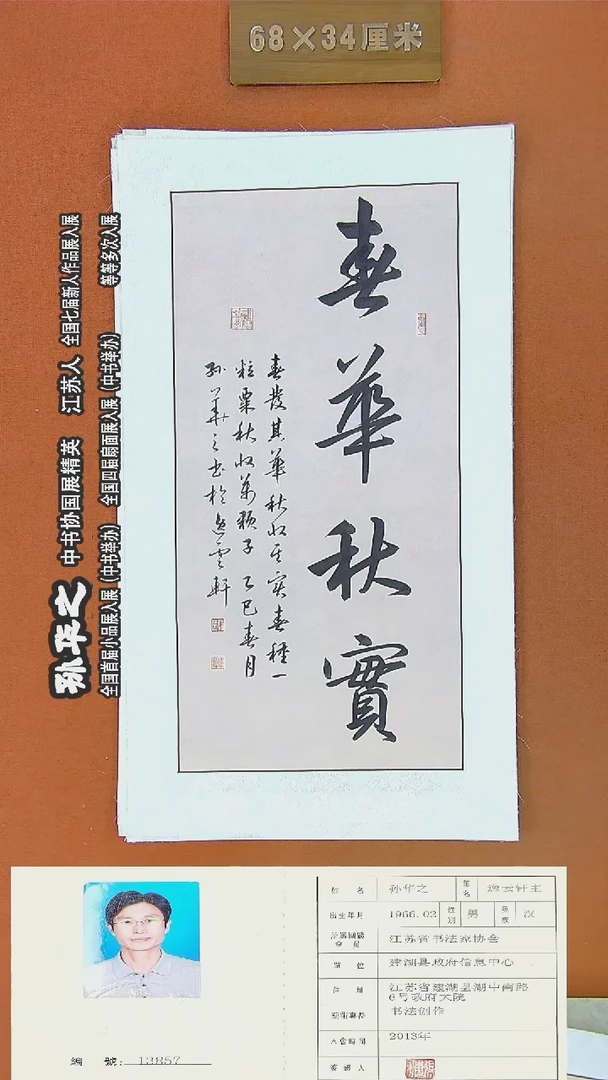 68×34厘米
春
華
秋
實
春發其華秋收其實春種一
粒粟秋收萬顆子 乙巳春月
孙華之书於逸雲軒
孙华之 中书协国展精英 江苏人 全国七届新人作品展入展
全国首届小品展入展(中书举办) 全国四届扇面展入展(中书举办) 等等多次入展
姓 名 孙华之 笔名 逸云轩主
出生年月 1966.02 性别 男 民族 汉
江苏省书法家协会
单 位 建湖县政府信息中心
住 址 江苏省建湖县湖中南路
6号政府大院
书法创作
入会时间 2013年
编 號: 13857